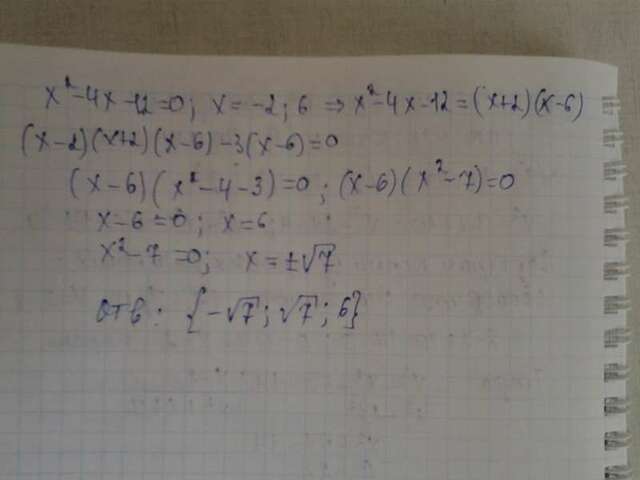 x²-4x-12=0; x=-2; 6 ⇒ x²-4x-12=(x+2)(x-6)
(x-2)(x+2)(x-6)-3(x-6)=0
(x-6)(x²-4-3)=0; (x-6)(x²-7)=0
x-6=0; x=6
x²-7=0; x=±√7
Отв: {-√7; √7; 6}